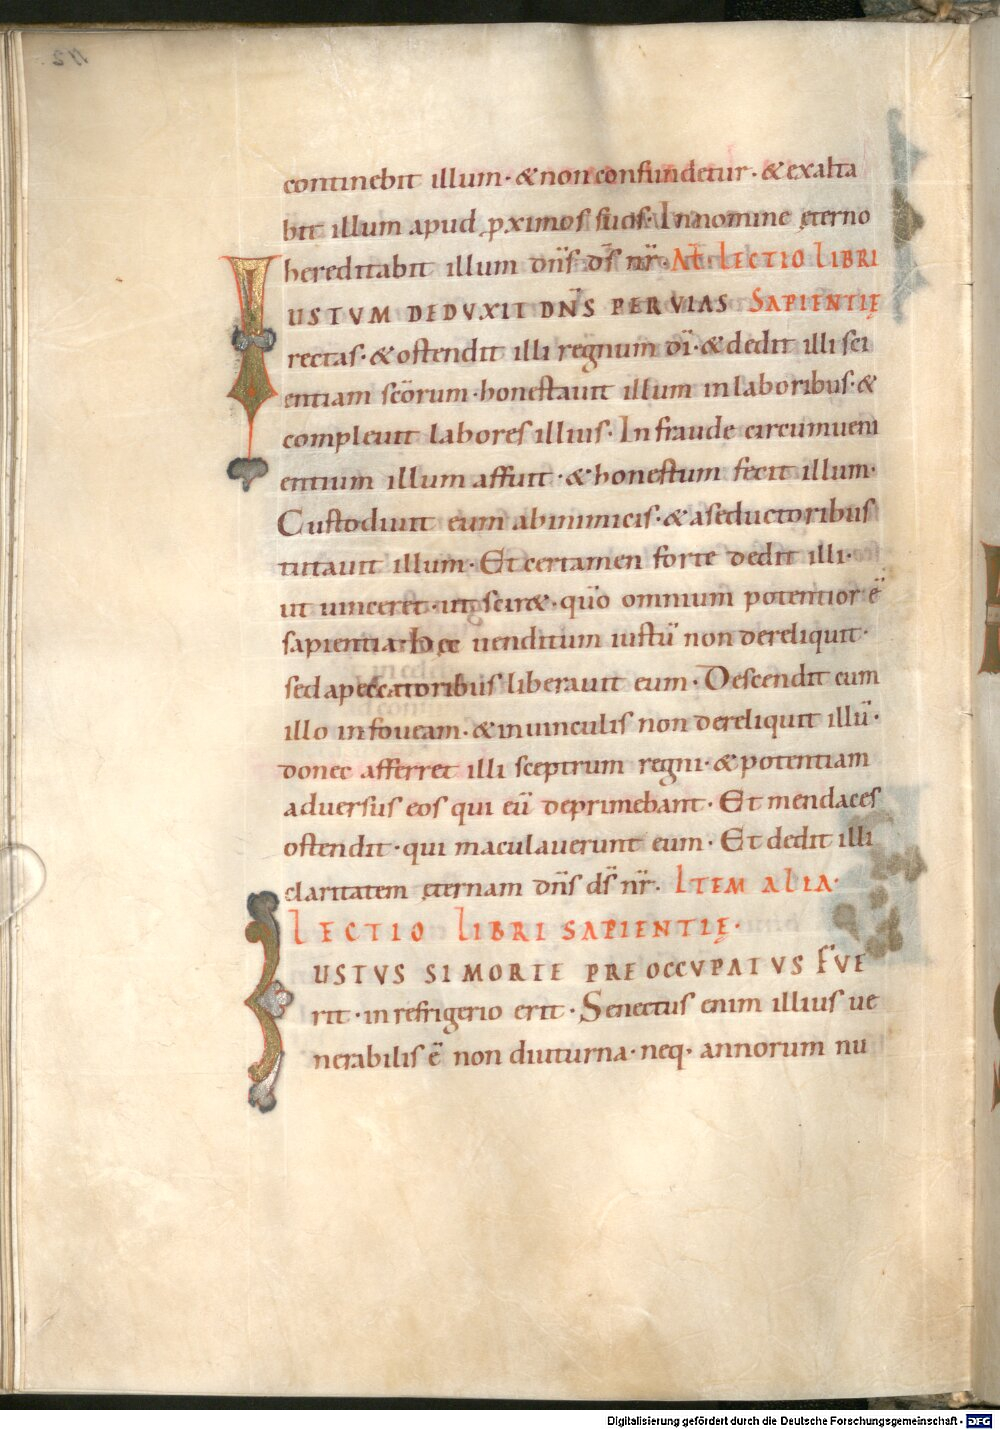 continebit illum · & non confundetur · & exalta
bit illum apud ꝓximos suos · In nomine ęterno
hereditabit illum dn̄s ds̄ nr̄ · AL LECTIO LIBRI
IUSTVM DEDVXIT DN̄S PER VIAS SAPIENTIĘ
rectas · & ostendit illi regnum dī · & dedit illi sci
entiam scōrum · honestauit illum in laboribus · &
compleuit labores illius · In fraude circumueni
entium illum affuit · & honestum fecit illum ·
Custodiuit eum ab inimicis · & a seductoribus
tutauit illum · Et certamen forte dedit illi ·
ut uinceret · ut scir& · qūo omnium potentior ē
sapientia · Hęc uenditum iustū non dereliquit ·
sed a peccatoribus liberauit eum · Descendit cum
illo in foueam · & in uinculis non dereliquit illū ·
donec afferret illi sceptrum regni · & potentiam
aduersus eos qui eū deprimebant · Et mendaces
ostendit · qui maculauerunt eum · Et dedit illi
claritatem ęternam dn̄s ds̄ nr̄ · ITEM ALIA ·
LECTIO LIBRI SAPIENTIĘ ·
IUSTVS SI MORTE PREOCCVPATVS FVE
rit · in refrigerio erit · Senectus enim illius ue
nerabilis ē non diuturna · neq· annorum nu
Digitalisierung gefördert durch die Deutsche Forschungsgemeinschaft - DFG